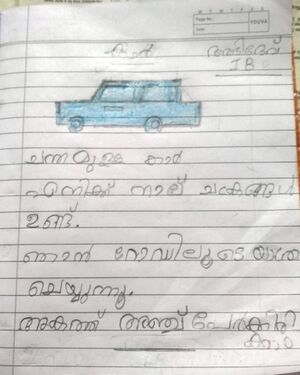 M T W T F S S
Page No.:
Date:
YOUVA
കാർ
ആദിദേവ്
I B
ചന്തമുള്ള കാർ
എനിക്ക് നാല് ചക്രങ്ങൾ
ഉണ്ട്.
ഞാൻ റോഡിലൂടെ യാത്ര
ചെയ്യുന്നു.
അകത്ത് അഞ്ച് പേർക്കിരി
ക്കാം